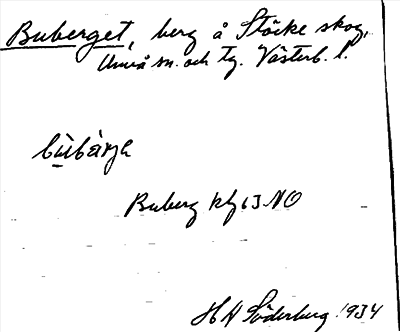 Buberget, berg å Stöcke skog,
Umeå sn. och tg. Västerb. l.
Buberg kf 63 NO
H A Söderberg 1934